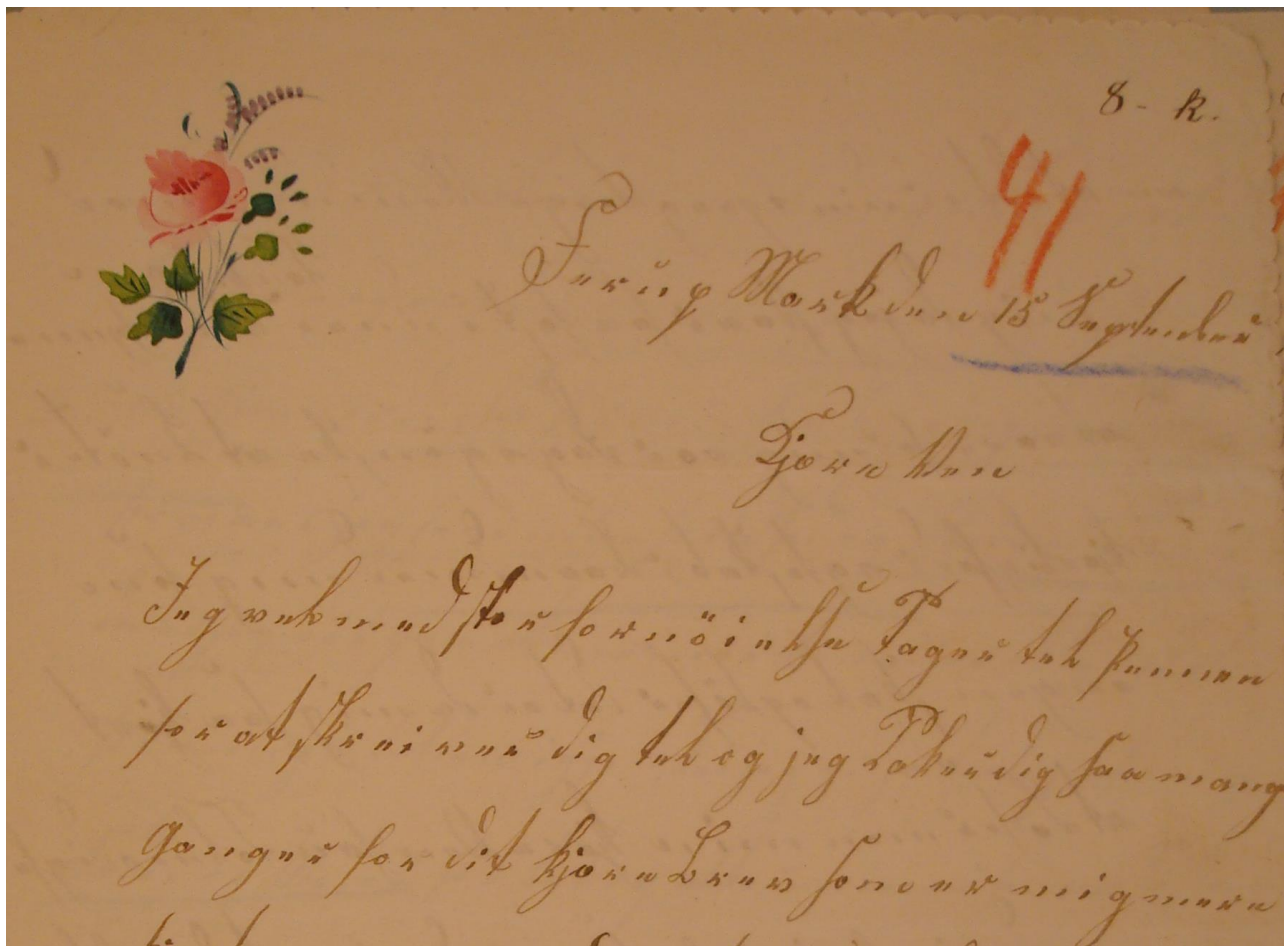 8 - k.
41
Ferup Mark den 15 September
Kjære Ven
Jeg vel med stor fornöielse Tager tel Pennen
for at skreiver dig tel og jeg Takker dig saa mang
Ganger for dit kjære Brev som er mig mere